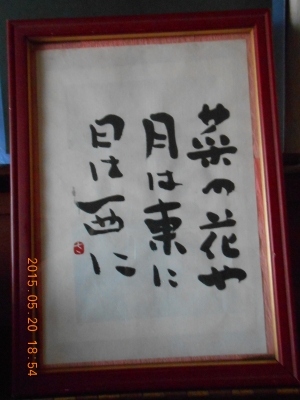 菜の花や
月は東に
日は西に
2015.05.20 18:54